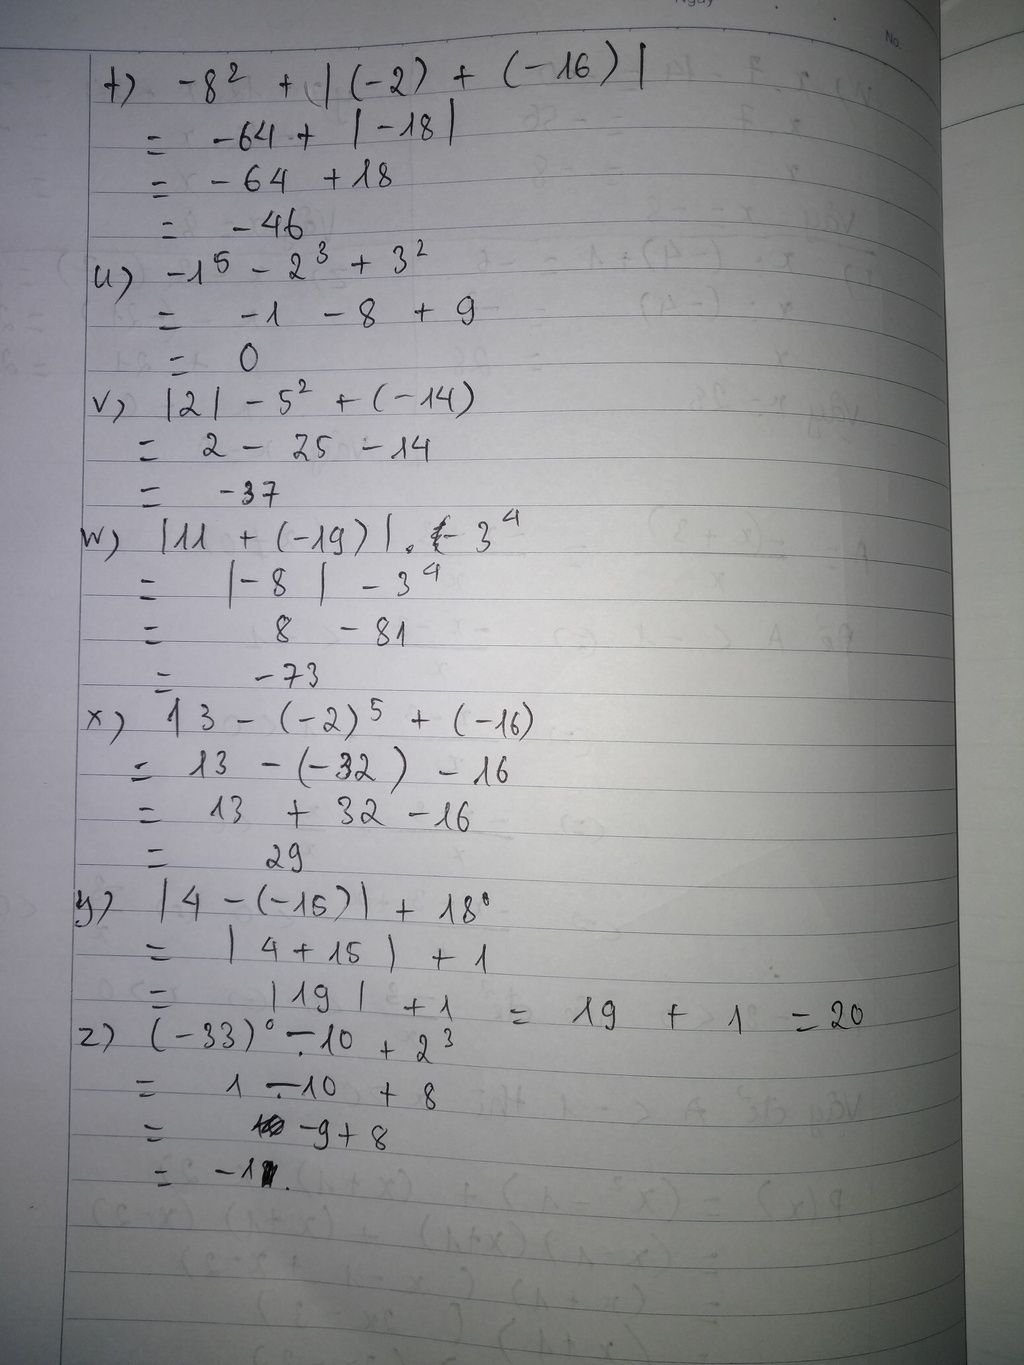 Ngày
No.
t) -8² + |(-2) + (-16)|
= -64 + |-18|
= -64 + 18
= -46
u) -1⁵ - 2³ + 3²
= -1 - 8 + 9
= 0
v) |2| - 5² + (-14)
= 2 - 25 - 14
= -37
w) |11 + (-19)| - 3⁴
= |-8| - 3⁴
= 8 - 81
= -73
x) 13 - (-2)⁵ + (-16)
= 13 - (-32) - 16
= 13 + 32 - 16
= 29
y) |4 - (-15)| + 18⁰
= |4 + 15| + 1
= |19| + 1 = 19 + 1 = 20
z) (-33)⁰ - 10 + 2³
= 1 - 10 + 8
= -9 + 8
= -1.